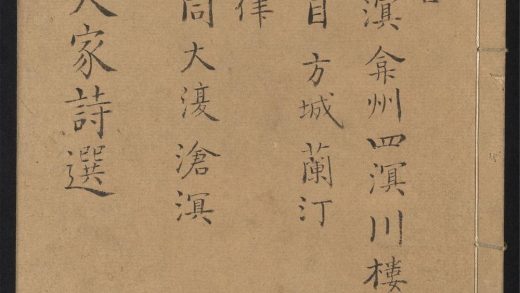 溟弇州四溟川樓
方城蘭汀
律
同大復滄溟
大家詩選